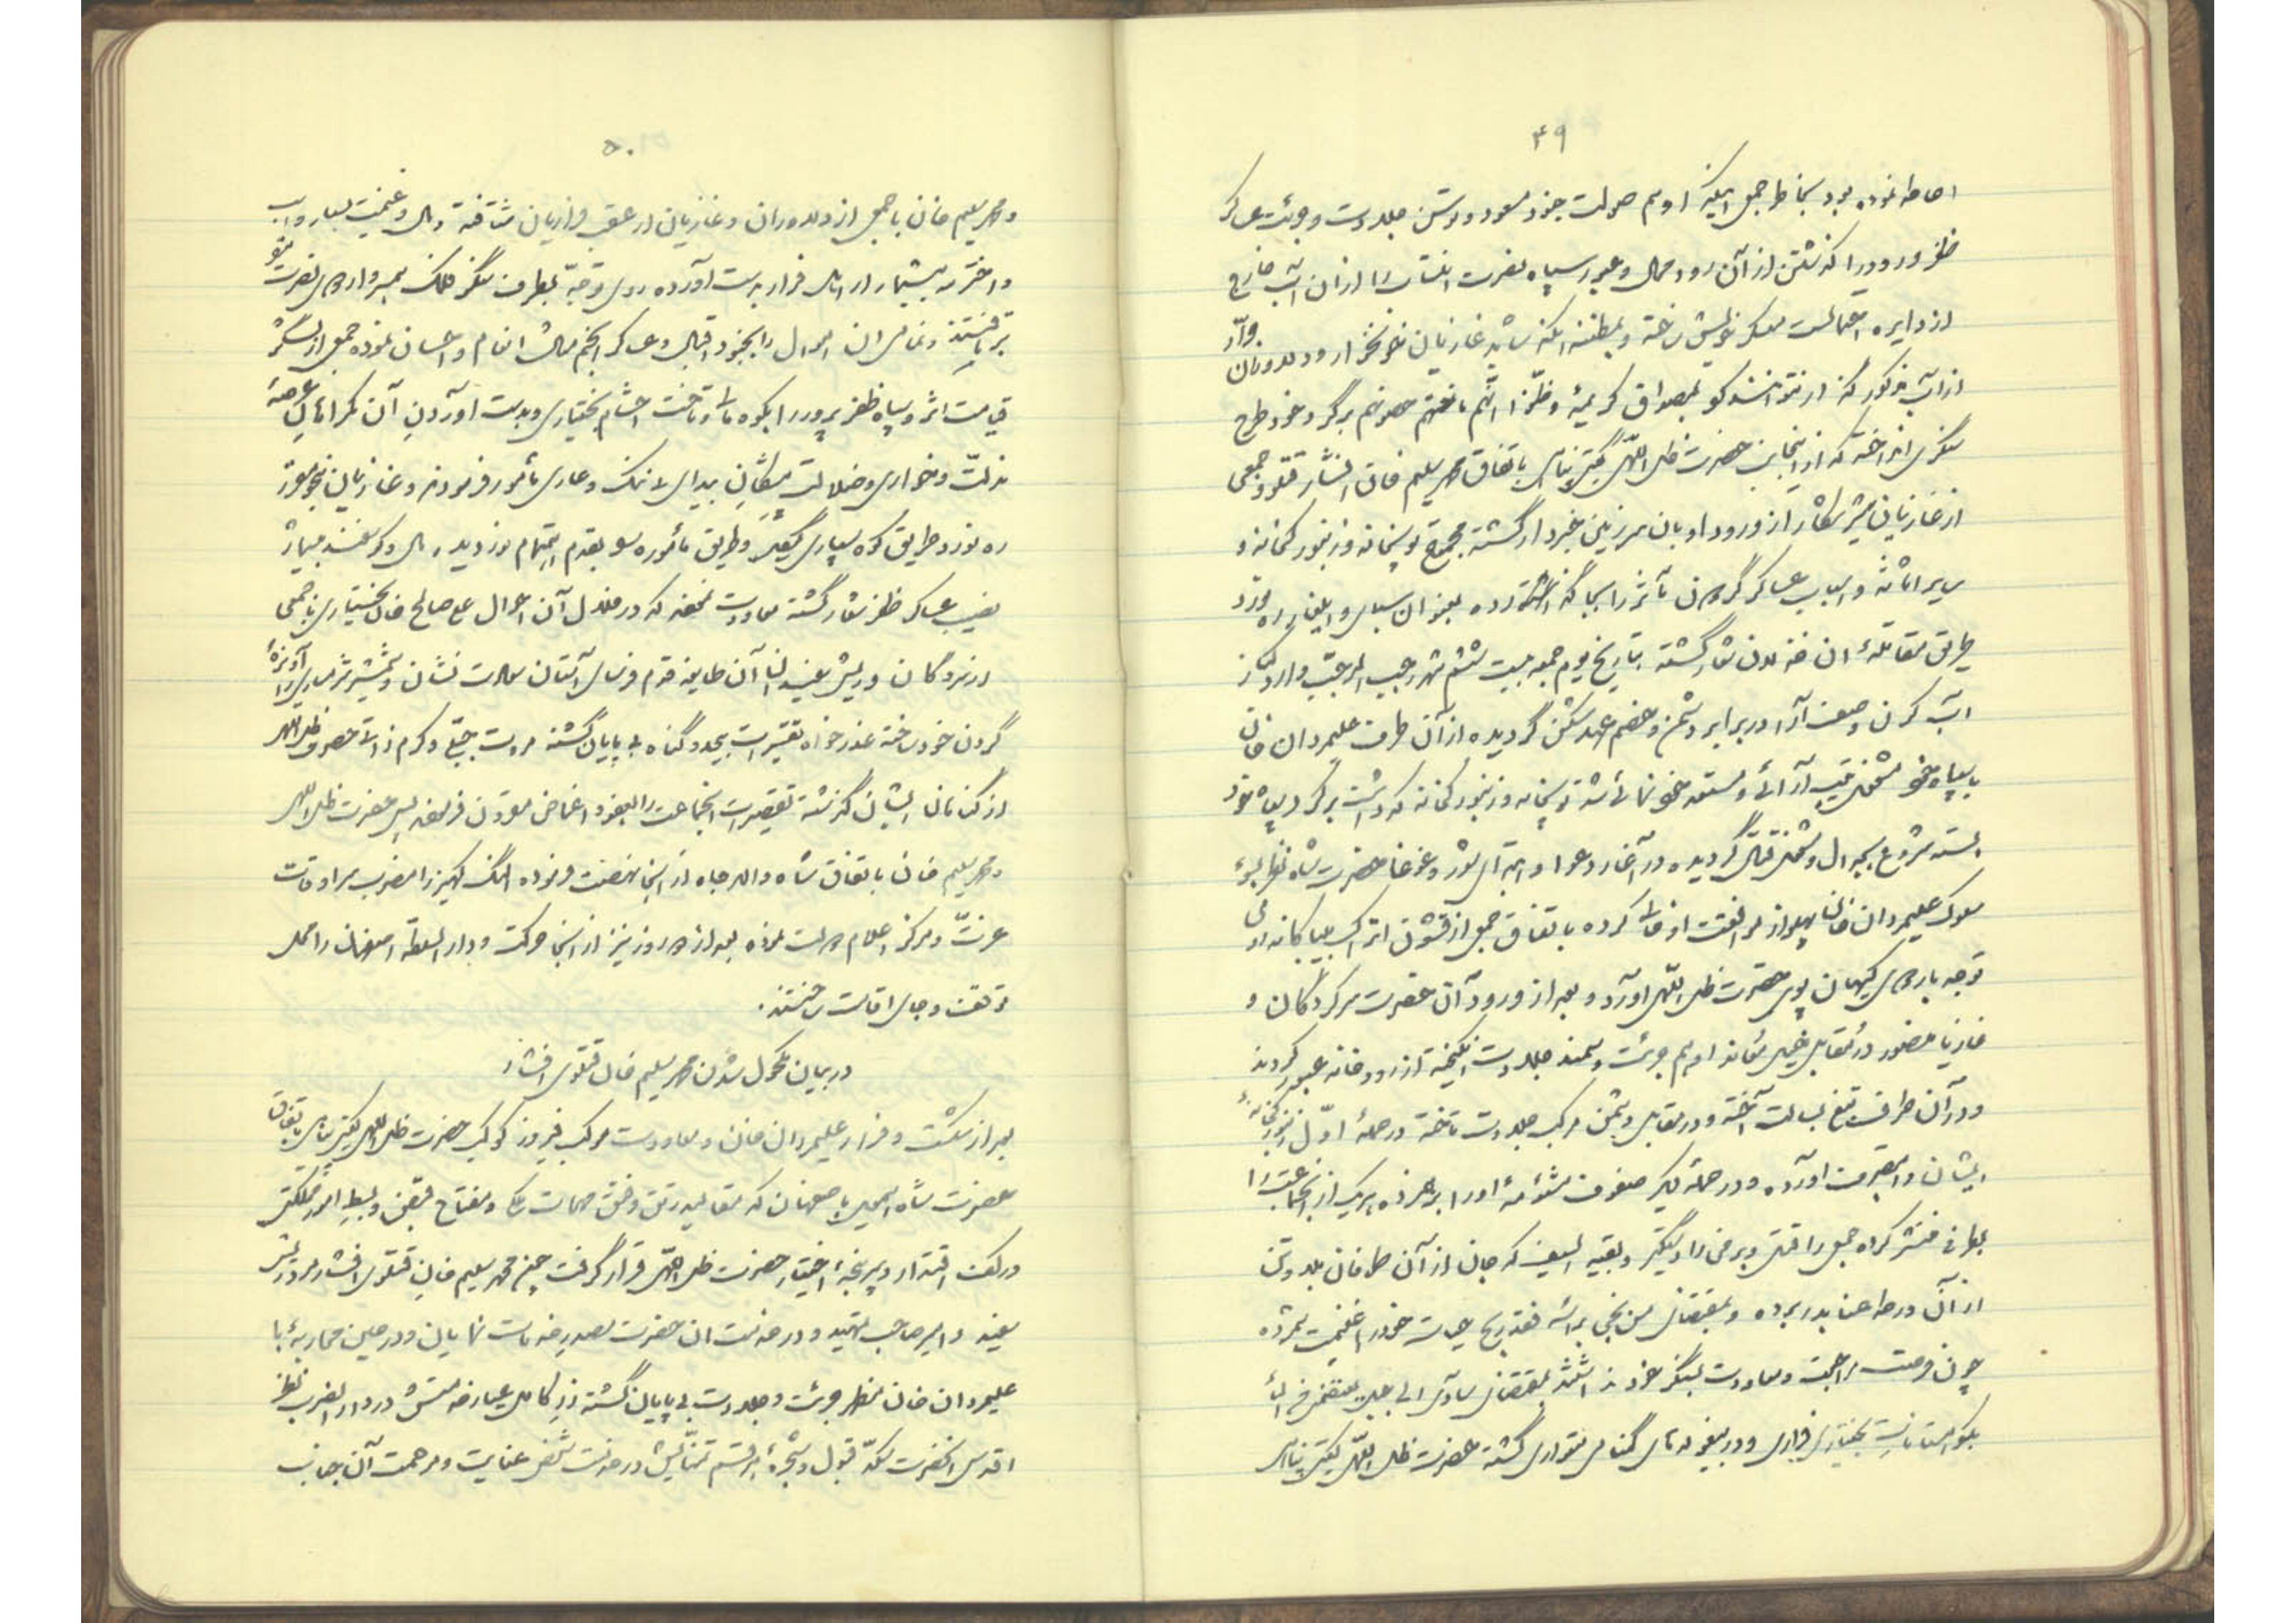 ۴۹
احاطه نموده بود بخاطر جمعی اینکه ادهم صولت جنود مسعود و توسن جلادت و جرئت عساکر
ظفر ورود را گذشتن از آن رود محال و عبور سپاه نصرت را از آن آب خارج
از دایره احتمالست معسکر خویش ساخته و بمظنه اینکه شاید غازیان خونخوار و دلاوران
از آب مذکور گذار نتوانند کرد بمصداق کریمهٔ وظنّوا انّهم مانعتهم حصونهم برگرد خود طرح
سنگری انداخته که از اینجانب حضرت ظل اللهی گیتی پناهی باتفاق محمد سلیم خان افشار و جمعی
از غازیان شیر شکار از ورود او بان سرزمین خبردار گشته مجموع توپخانه و زنبورکخانه و
سایر اثاثه و اسباب عساکر گردون مآثر را بجا گذاشته بعنوان و ایلغار ره نورد
طریق مقابلهٔ ان خذلان شعار گشته بتاریخ یوم جمعه بیست ششم شهر رجب المرجب وارد کنار
آب کرن وصف آرا در برابر دشمن و خصم عهد شکن گردیده از آن طرف علیمردان خان
با سپاه خود مشغول ترتیب آرائی و مستعد خود نمائی شده توپخانه و زنبورکخانه که داشت برگرد سپاه خود
بسته شروع بجدال و مشغول قتال گردیده در آغاز دعوا و ابتدای شور و غوغا حضرت شاه
سلوک علیمردان خان پهلو از مرافقت او خالی کرده باتفاق جمعی از قشون اتراک بیباکانه روی
توجه باردوی کیهان پوی حضرت ظل اللهی آورد و بعد از ورود آن حضرت سرکردگان و
غازیان منصور در مقابل خصم ادهم جرئت و سمند جلادت انگیخته از رودخانه عبور کردند
و در آن طرف تیغ بسالت آخته و در مقابل دشمن مرکب جلادت تاخته در حملهٔ اوّل زنبورکخانهٔ
ایشان را بتصرف آورده و در حملهٔ دیگر صفوف مشئومهٔ او را بر هم زده هریک از انجماعت را
بجائی منتشر کرده جمعی را قتیل و برخی را دستگیر و بقیه السیف که جان از آن طوفان بلا و
از آن ورطه عنا بدر برده و بمقتضای من نجی براسه فقد ربح حیات خود را غنیمت شمرده
چون فرصت مراجعت و معاودت بسنگر خود نداشتند بمقتضای ساوی الی جبل یعصمنی من الماء
بکوهستانات بختیاری فراری و در بیغوله های گمنامی متواری گشته حضرت ظل اللهی گیتی پناهی
۵۰
و محمد سلیم خان با جمعی از دلاوران و غازیان در عقب فراریان شتافته و مال و غنیمت بسیار و اسب
و استر بیشمار از اهل فرار بدست آورده روی توجه بطرف سنگر
برتافتند و تمامی ان اموال را بجنود اقبال و عساکر انجم مثال انعام و احسان نموده جمعی از لشکر
قیامت اثر و سپاه ظفر پرور را بکوه مال و تاخت احشام بختیاری و بدست آوردن آن گمراهان عرصهٔ
مذلت و خواری و ضلالت پیشگان بیدای ننگ و عاری مأمور فرمودند و غازیان
ره نورد طریق کوه سپاری گردیده و طریق ماموره را بقدم اهتمام نوردیده مال و گوسفند بسیار
نصیب عساکر ظفر شعار گشته معاودت نمودند که در خلال آن احوال علی صالح خان بختیاری با جمعی
از سرکردگان و ریش سفیدان آن طایفه قدم فرسای آستان سعادت نشان و شمشیر شرمساری را آویزهٔ
گردن خود ساخته عذرخواه تقصیرات بیحد و گناه بی پایان گشته مروت جبلّی و کرم ذاتی حضرت ظل اللهی
از گناهان ایشان گذشته تقصیرات انجماعت را بعفو و اغماض مقرون فرمودند پس حضرت ظل اللهی
و محمد سلیم خان باتفاق شاه والا جاه از آنجا نهضت فرموده النگ کهیز را مضرب سرادقات
عزّت و مرکز اعلام دولت نموده بعد از دو روز نیز از آنجا حرکت و دار السلطنه اصفهان را محل
توقف و جای اقامت ساختند.
در بیان مکحول شدن محمد سلیم خان قتلوی افشار
بعد از شکست و فرار علیمردان خان و معاودت موکب فیروز کوکب حضرت ظل اللهی گیتی پناهی باتفاق
حضرت شاه اسمعیل باصفهان که مقالید رتق و فتق مهمات ملک و مفتاح قبض و بسط امور مملکتی
در کف اقتدار و سرپنجهٔ اختیار حضرت ظل اللهی قرار گرفت چون محمد سلیم خان قتلوی افشار مرد ریش
سفید و امیر صاحب تمهید و در خدمت ان حضرت مصدر خدمات نمایان و در حین محاربهٔ با
علیمردان خان مظهر جرئت و جلادت بی پایان گشته زر کامل عیار خدمتش در دار الضرب نظر
اقدس آنحضرت سکه قبول و شجرهٔ هر قسم تمنایش در خدمت شخص عنایت و مرحمت آن جناب